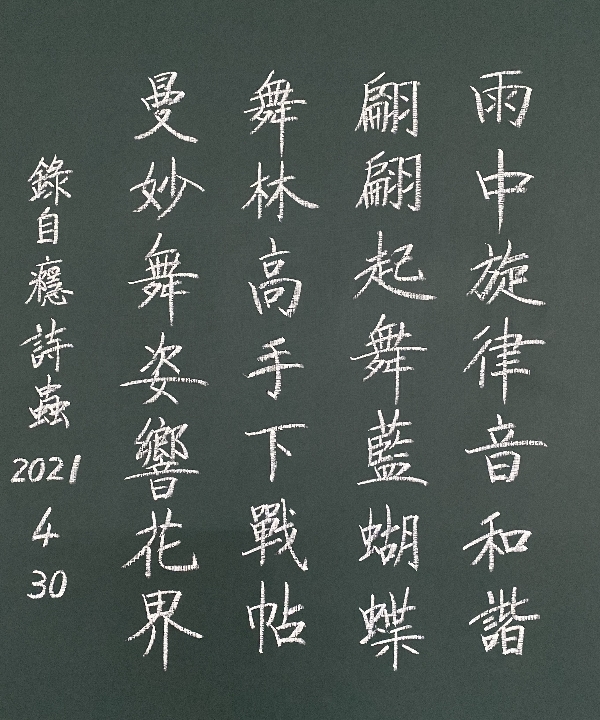 雨中旋律音和諧
翩翩起舞藍蝴蝶
舞林高手下戰帖
曼妙舞姿響花界
錄自癮詩蟲
2021
4
30